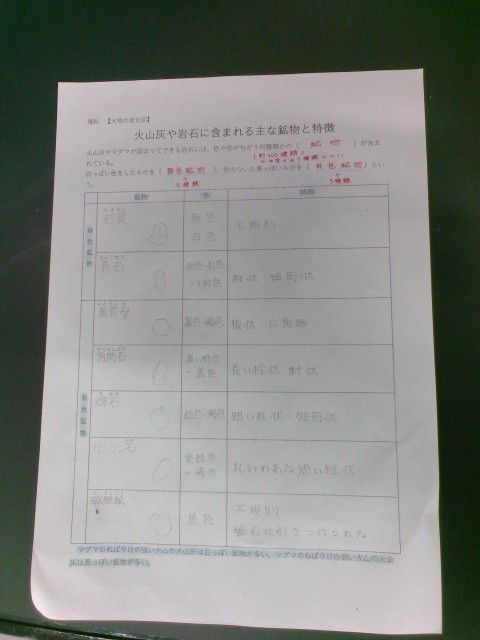 理科 【大地の変化⑥】
火山灰や岩石に含まれる主な鉱物と特徴
火山灰やマグマが固まってできる岩石には、色や形がちがう何種類かの( 鉱物 )が含ま
れている。
白っぽい色をしたものを( 無色鉱物 )、色のついた黒っぽいものを( 有色鉱物 )とい
う。
2種類 5種類
鉱物 色 特徴
無色鉱物
石英 無色 白色 不規則
長石 柱状・短冊状
有色鉱物
黒雲母 黒色~褐色 板状・六角形
角閃石 濃い緑色~黒色 長い柱状・針状
輝石 緑色~褐色 短い柱状・短冊状
カンラン石 黄緑色~褐色 丸みのある短い柱状
黒色 不規則
磁石に引きつけられる
マグマのねばりけの強い火山の火山灰は白っぽい鉱物が多い。マグマのねばりけの弱い火山の火山
灰は黒っぽい鉱物が多い。